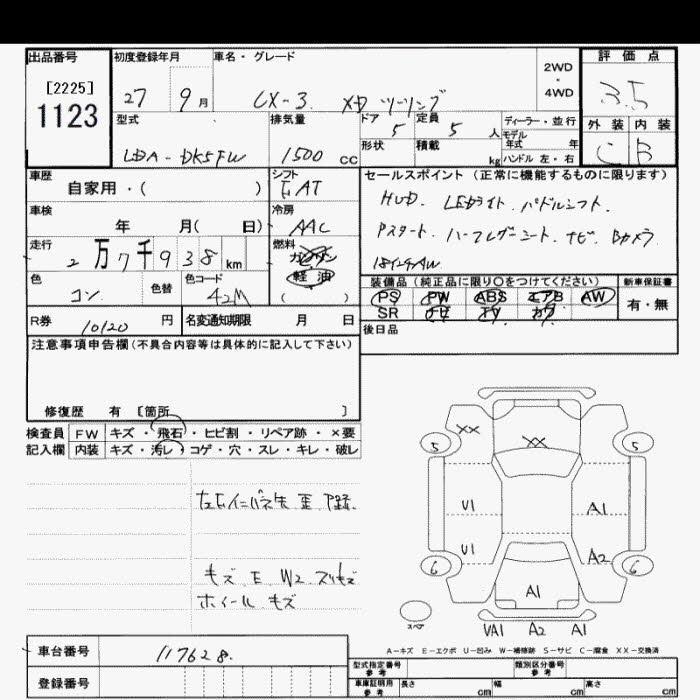 出品番号
[2225]
1123
初度登録年月
27 9月
車名・グレード
CX-3 XD ツーリング
2WD
・
4WD
評価点
3.5
型式
LDA-DK5FW
排気量
1500 cc
ドア
5
定員
5 人
形状
積載
kg
ディーラー・並行
モデル
年式 年
ハンドル 左・右
外装 内装
C B
車歴
自家用・( )
シフト
FAT
車検
年 月( 日)
冷房
AAC
走行
2万7千938km
燃料
ガソリン
軽油
( )
色
コン
色替
色コード
42M
セールスポイント(正常に機能するものに限ります)
HUD. LEDライト. パドルシフト.
Pスタート. ハーフレザーシート. ナビ. Bカメラ
18インチAW
装備品(純正品に限り○をつけてください)
PS PW ABS エアB AW
SR ナビ TV カワ
新車保証書
有・無
後日品
R券
10120 円
名変通知期限 月 日
注意事項申告欄(不具合内容等は具体的に記入して下さい)
修復歴 有 [箇所 ]
検査員
記入欄
FW キズ・飛石・ヒビ割・リペア跡・×要
内装 キズ・汚レ・コゲ・穴・スレ・キレ・破レ
キズ E W2 スリキズ
ホイール キズ
XX
XX
5
5
U1
A1
U1
A2
6
6
A1
スペア
A2 A1
A-キズ E-エクボ U-凹み W-補修跡 S-サビ C-腐食 XX-交換済
車台番号
117628
登録番号
型式指定番号
参考
類別区分番号
参考
車庫証明用
参考
長さ cm
幅 cm
高さ cm